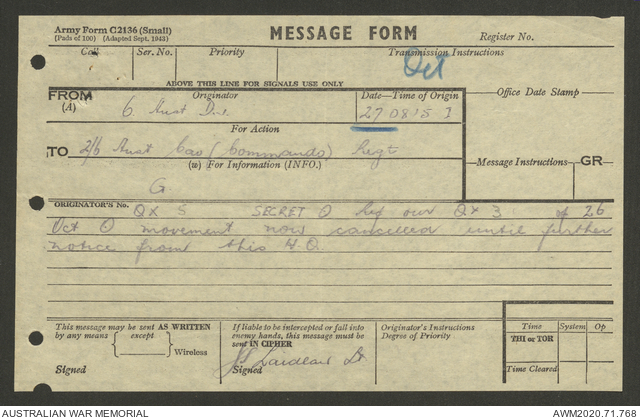 Army Form C2136 (Small)
(Pads of 100) (Adapted Sept. 1943)
MESSAGE FORM
Register No.
Call Ser. No. Priority Transmission Instructions
Oct
ABOVE THIS LINE FOR SIGNALS USE ONLY
FROM Originator Date—Time of Origin Office Date Stamp
(A) 6 Aust Div. 270815 I
For Action
TO 2/6 Aust Cav (Commando) Regt
(W) For Information (INFO.) Message Instructions GR
G.
ORIGINATOR'S No. QX 5 SECRET O Ref our QX 3 of 26
Oct O movement now cancelled until further
notice from this H.Q.
This message may be sent AS WRITTEN
by any means except
Wireless
Signed
If liable to be intercepted or fall into
enemy hands, this message must be
sent IN CIPHER
Signed Lt
Originator's Instructions
Degree of Priority
Time System Op
THI or TOR
Time Cleared
AUSTRALIAN WAR MEMORIAL AWM2020.71.768